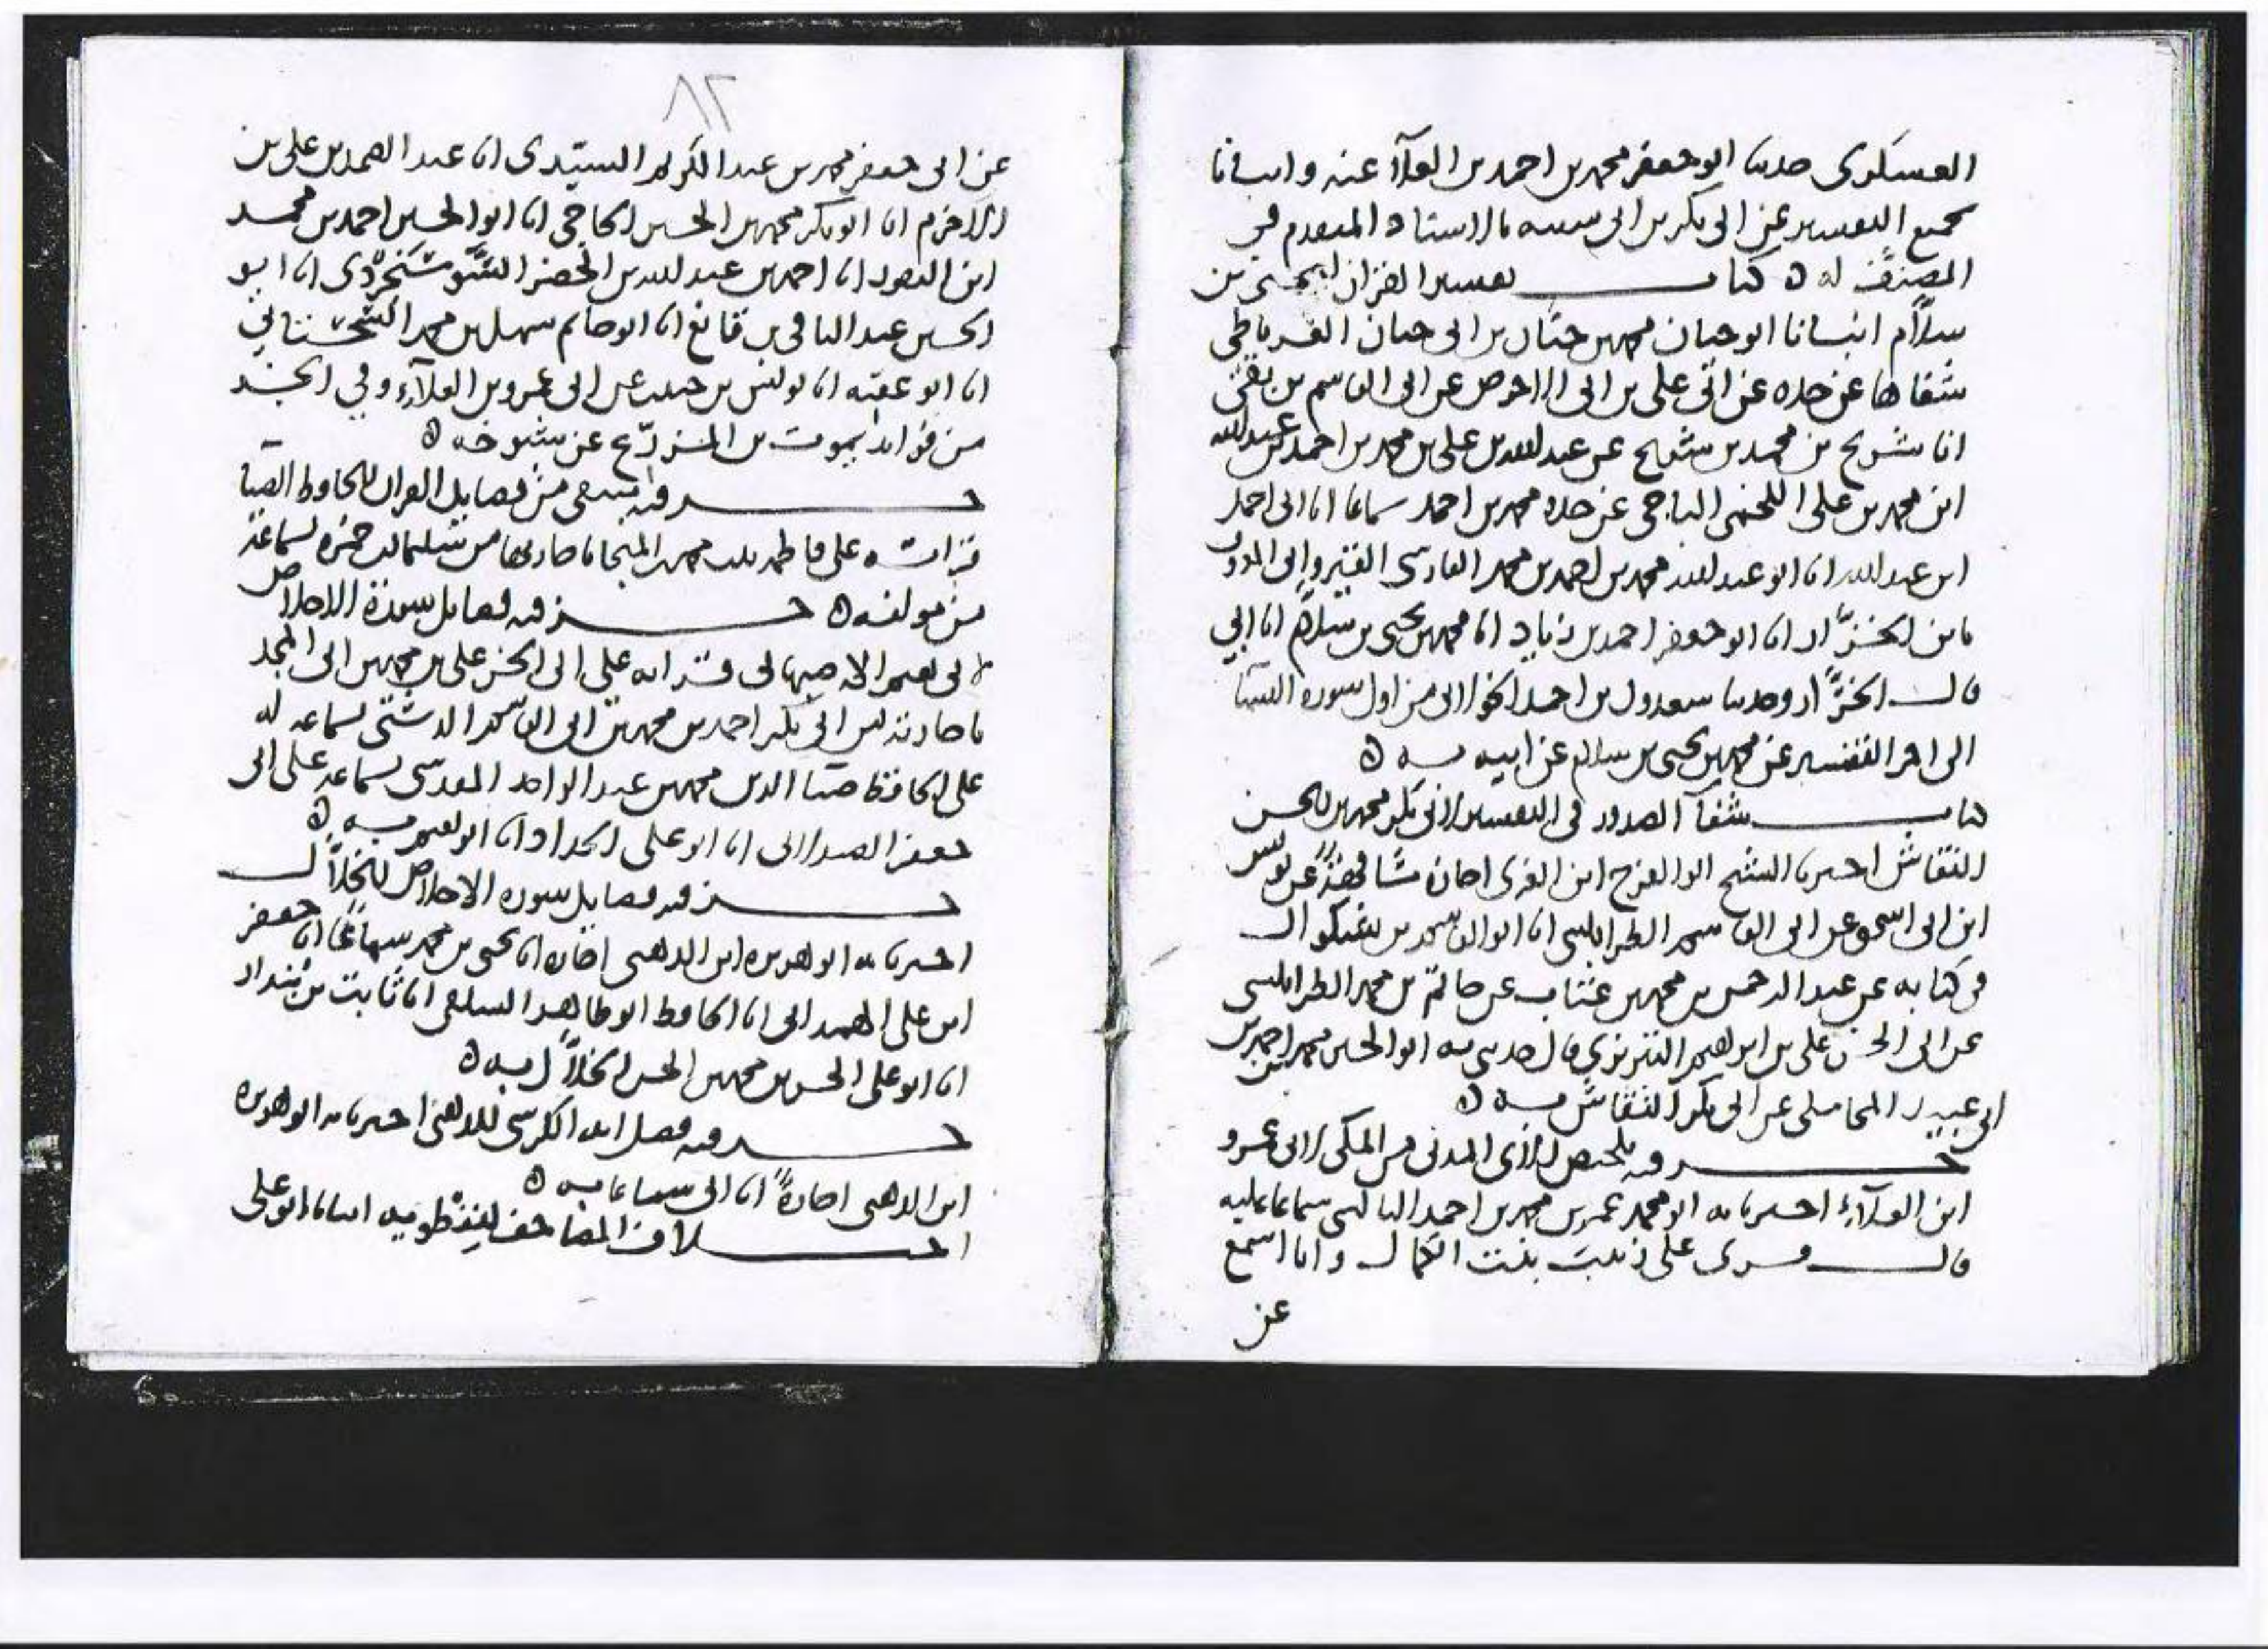 العسكرى حدثنا ابو جعفر محمد بن احمد بن العلآء عنه وانبانا
بجميع التفسير عن ابى بكر بن ابى شيبه بالاسناد المتقدم فى
المصنَّف له ه كتاب تفسير القران ليحيى بن
سلاَّم انبانا ابو حيان محمد بن حيَّان بن ابى حيان الغرناطي
شفاها عن جده عن ابى على بن ابى الاحوص عن ابى القاسم بن بقىّ
انا شريح بن محمد بن شريح عن عبد الله بن على بن محمد بن احمد بن عبد الله
ابن محمد بن على اللخمى الباجى عن جده محمد بن احمد سماعا انا ابى احمد
ابن عبد الله انا ابو عبد الله محمد بن احمد بن محمد الفارسى القيروانى المعروف
بابن الخرَّاز انا ابو جعفر احمد بن زياد انا محمد بن يحيى بن سلام انا ابي
قال الخرَّاز وحدثنا سعدول بن احمد الخولانى من اول سوره النسا
الى اخر التفسير عن محمد بن يحيى بن سلام عن ابيه به ه
كتاب شفآ الصدور فى التفسير لابى بكر محمد بن الحسن
النقاش اخبرنا الشيخ ابو الفرج ابن الغزى اجازة مشافهة عن يونس
ابن ابى اسحق عن ابى القاسم الطرابلسى انا ابو القاسم بن بشكوال
فى كتابه عن عبد الرحمن بن محمد بن عتاب عن حاتم بن محمد الطرابلسى
عن ابى الحسن على بن ابراهيم التبريزي قال حدثنى به ابو الحسين محمد بن احمد بن
ابى عبيد المحاملى عن ابى بكر النقاش به ه
جزء فيه تلخيص لآى المدنى من المكى لابى عمرو
ابن العلآء اخبرنا به ابو محمد عمر بن محمد بن احمد البالسى سماعا عليه
قال قرى على زينب بنت الكمال وانا اسمع
عن
٨٢
عن ابى جعفر محمد بن عبد الكريم السيّدى انا عبد الصمد بن على بن
الاخرم انا ابو بكر محمد بن الحسن الحاجى انا ابو الحسين احمد بن محمد
ابن النقور انا احمد بن عبد الله بن الخضر السَّوسَنجردى انا ابو
الحسين عبد الباقى بن قانع انا ابو حاتم سهل بن محمد السجستاني
انا ابو عقبه انا يونس بن حبيب عن ابى عمرو بن العلآء وفي الجزء
من فوايد يموت بن المزرّع عن شيوخه ه
جزء فيه منتقى من فضايل القران للحافظ الضيا
قراته على فاطمه بنت محمد بن المنجا باجازتها من سليمان بن حمزه بسماعه
من مولفه ه جزء فيه فضايل سورة الاخلاص
لابى نعيم الاصبهانى قراته على ابى الحسن على بن محمد بن ابى المجد
باجازته من ابى بكر احمد بن محمد بن ابى القاسم الدشتى بسماعه له
على الحافظ ضيا الدين محمد بن عبد الواحد المقدسى بسماعه على ابى
جعفر الصيدلانى انا ابو على الحداد انا ابو نعيم به ه
جزء فيه فضايل سوره الاخلاص للخلاَّل
اخبرنا به ابو هريره ابن الذهبى اجازه انا يحيى بن محمد سماعًا انا جعفر
ابن على الهمدانى انا الحافظ ابو طاهر السلفى انا ثابت بن بُندار
انا ابو على الحسن بن محمد بن الحسن الخلاَّل به ه
جزء فيه فضل ايه الكرسى للذهبى اخبرنا به ابو هريره
ابن الذهبى اجازةً انا ابى سماعا به ه
اختلاف المصاحف لنفطويه انبانا ابو على